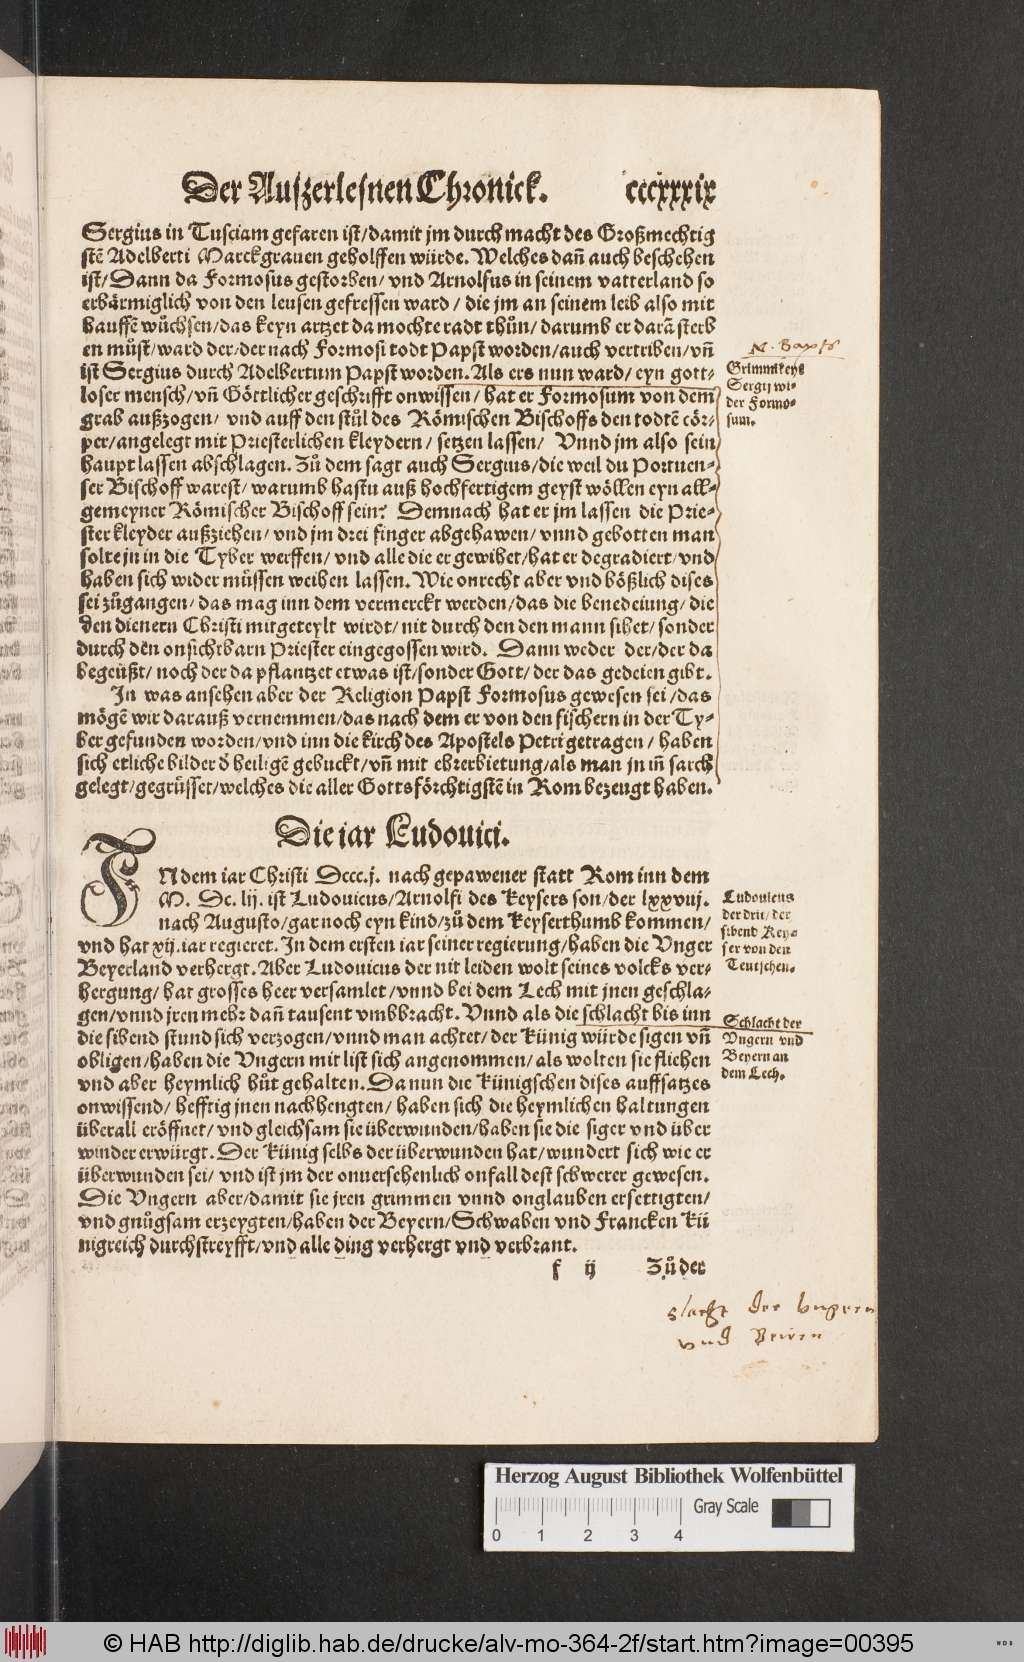 Der Auſzerleſnen Chronick. cccxxxix
Sergius in Tuſciam gefaren iſt/damit jm durch macht des Großmechtig
ſtē Adelberti Marckgrauen geholffen würde. Welches dañ auch beſchehen
iſt/Dann da Formoſus geſtorben/ vnd Arnolfus in ſeinem vatterland ſo
erbärmiglich von den leuſen gefreſſen ward / die jm an ſeinem leib alſo mit
hauffē wůchſen/das keyn artzet da mochte radt thůn/ darumb er darā ſterb
en můſt/ward der/der nach Formoſi todt Papſt worden/auch vertriben/vñ
iſt Sergius durch Adelbertum Papſt worden. Als ers nun ward/ eyn gott-
loſer menſch/vñ Göttlicher geſchrifft onwiſſen/ hat er Formoſum von dem
grab außzogen/ vnd auff den ſtůl des Römiſchen Biſchoffs den todtē cör-
per/angelegt mit Prieſterlichen kleydern/ ſetzen laſſen/ Vnnd jm alſo ſein
haupt laſſen abſchlagen. Zů dem ſagt auch Sergius/die weil du Portuen-
ſer Biſchoff wareſt/ warumb haſtu auß hochfertigem geyſt wöllen eyn all-
gemeyner Römiſcher Biſchoff ſein? Demnach hat er jm laſſen die Prie-
ſter kleyder außziehen/ vnd jm drei finger abgehawen/ vnnd gebotten man
ſolte jn in die Tyber werffen/ vnd alle die er gewihet/hat er degradiert/vnd
haben ſich wider müſſen weihen laſſen. Wie onrecht aber vnd bößlich diſes
ſei zůgangen/ das mag inn dem vermerckt werden/das die benedeiung/ die
den dienern Chriſti mitgeteylt wirdt/ nit durch den den mann ſihet/ ſonder
durch den onſichtbarn Prieſter eingegoſſen wird. Dann weder der/der da
begeüßt/ noch der da pflantzet etwas iſt/ſonder Gott/ der das gedeien gibt.
In was anſehen aber der Religion Papſt Formoſus geweſen ſei /das
mögē wir darauß vernemmen/das nach dem er von den fiſchern in der Ty-
ber gefunden worden/vnd inn die kirch des Apoſtels Petri getragen/ haben
ſich etliche bilder d' heiligē gebuckt/vñ mit ehrerbietung/als man jn iñ ſarch
gelegt/gegrüſſet/welches die aller Gottsförchtigſtē in Rom bezeugt haben.
N. Bapſts
Grimmkeyt
Sergij wi-
der Formo-
ſum.
Die iar Ludouici.
INdem iar Chriſti Dccc.j. nach gepawener ſtatt Rom inn dem
M. Dc. lij. iſt Ludouicus/Arnolfi des Keyſers ſon/der lxxvij.
nach Auguſto/gar noch eyn kind/zů dem Keyſerthumb kommen/
vnd hat xij. iar regieret. In dem erſten iar ſeiner regierung/haben die Vnger
Beyerland verhergt. Aber Ludouicus der nit leiden wolt ſeines volcks ver-
hergung/ hat groſſes heer verſamlet /vnnd bei dem Lech mit jnen geſchla-
gen/vnnd jren mehr dañ tauſent vmbbracht. Vnnd als die ſchlacht bis inn
die ſibend ſtund ſich verzogen/vnnd man achtet/der Künig würde ſigen vñ
obligen/haben die Vngern mit liſt ſich angenommen/als wolten ſie fliehen
vnd aber heymlich hůt gehalten. Da nun die Künigſchen diſes auffſatzes
onwiſſend/ hefftig jnen nachhengten/ haben ſich die heymlichen haltungen
überall eröffnet/ vnd gleichſam ſie überwunden/haben ſie die ſiger vnd über
winder erwürgt. Der Künig ſelbs der überwunden hat/wundert ſich wie er
überwunden ſei/ vnd iſt jm der onuerſehenlich onfall deſt ſchwerer geweſen.
Die Vngern aber/damit ſie jren grimmen vnnd onglauben erſettigten/
vnd gnůgſam erzeygten/haben der Beyern/Schwaben vnd Francken Kü
nigreich durchſtreyfft/vnd alle ding verhergt vnd verbrant.
Ludouicus
der drit/ der
ſibend Key-
ſer von den
Teutſchen.
Schlacht der
Vngern vnd
Beyern an
dem Lech.
f ij Zů der
slacht der vngern
vnd Beiren
Herzog August Bibliothek Wolfenbüttel
Gray Scale
0 1 2 3 4
© HAB http://diglib.hab.de/drucke/alv-mo-364-2f/start.htm?image=00395